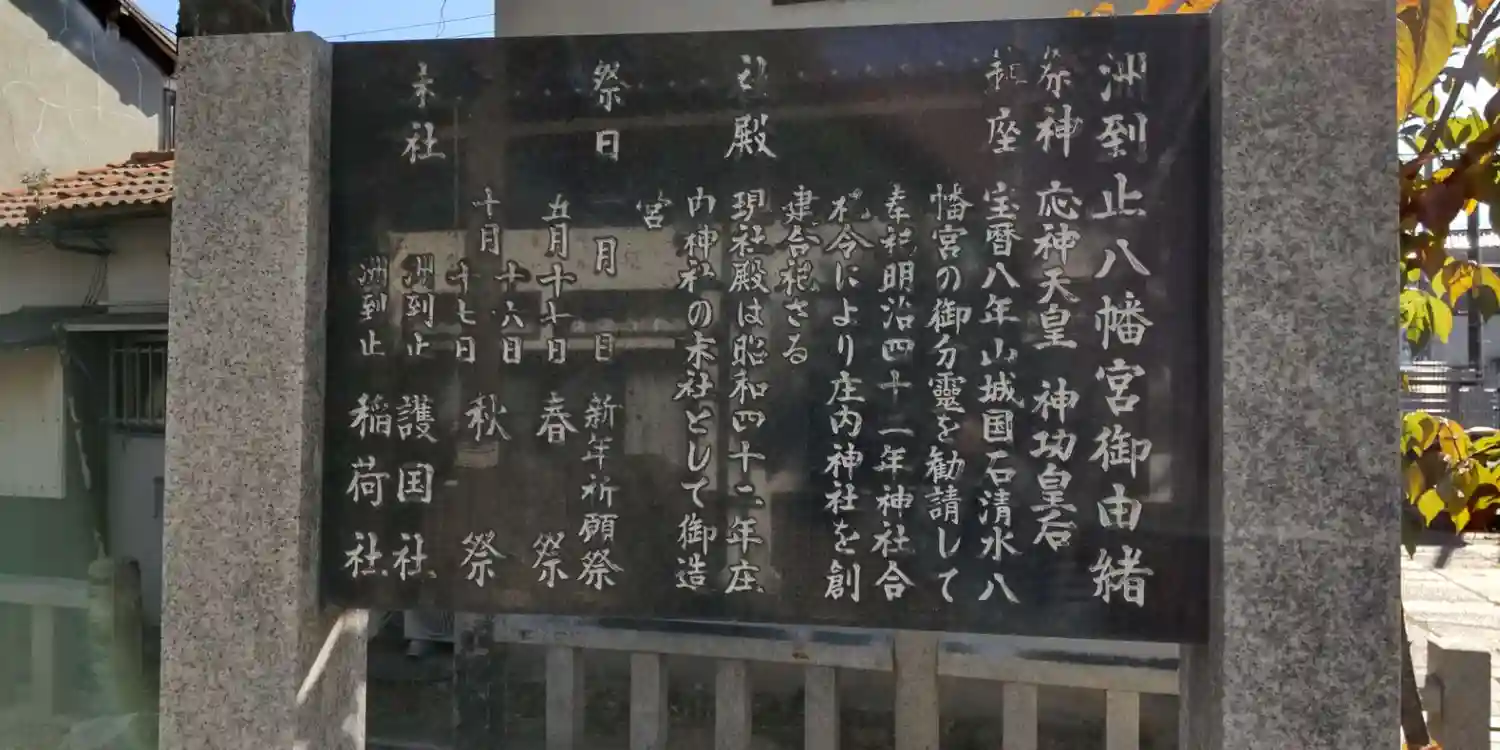 洲到止八幡宮御由緒
祭神 応神天皇 神功皇后
鎮座 宝暦八年山城国石清水八
幡宮の御分靈を勧請して
奉祀明治四十二年神社合
祀令により庄内神社を創
建合祀さる
社殿 現社殿は昭和四十二年庄
内神社の末社として御造
宮
祭日 一月一日 新年祈願祭
五月十七日 春祭
十月十六日
十七日 秋祭
末社 洲到止 護国社
洲到止 稲荷社